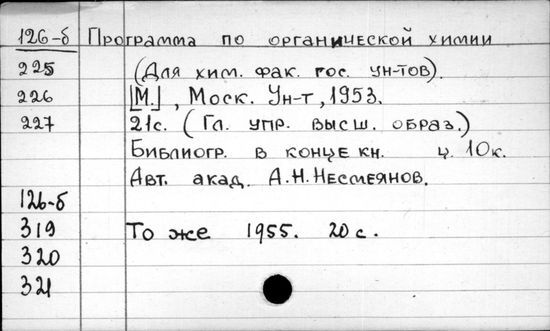 126-б Программа по органической химии
225 (Для хим. фак. гос. ун-тов).
226 [М.], Моск. Ун-т, 1953.
227 21с. (Гл. упр. высш. образ.)
Библиогр. в конце кн. ц. 10к.
Авт. акад. А.Н.Несмеянов.
126-б
319 То же 1955. 20с.
320
321